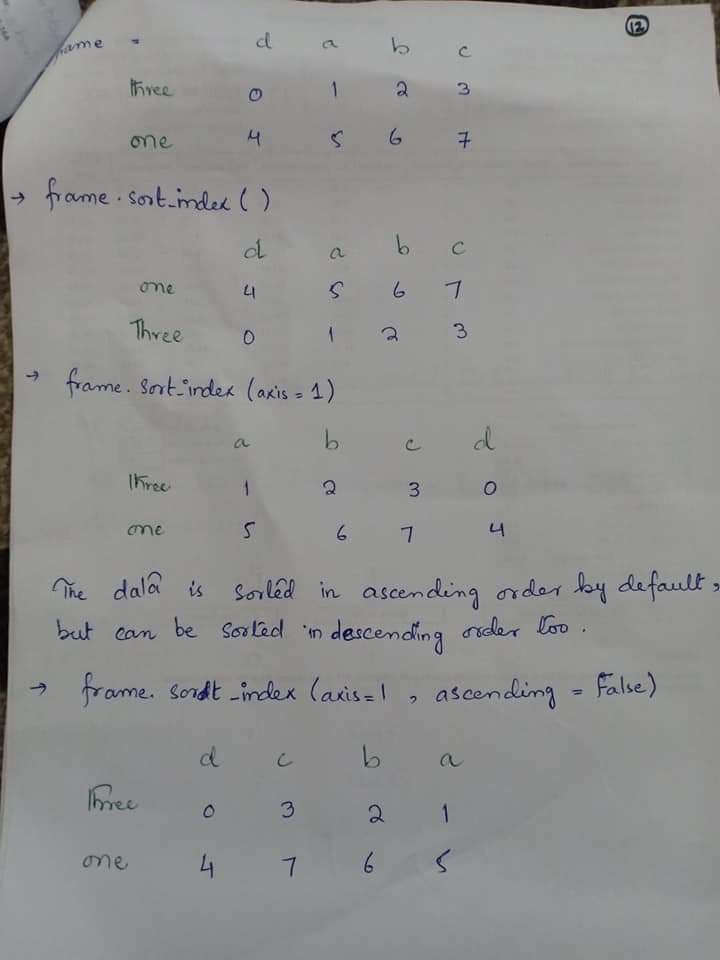 12
frame =
d a b c
three 0 1 2 3
one 4 5 6 7
→ frame.sort_index()
d a b c
one 4 5 6 7
Three 0 1 2 3
→ frame.sort_index (axis = 1)
a b c d
three 1 2 3 0
one 5 6 7 4
The data is sorted in ascending order by default,
but can be sorted in descending order too.
→ frame.sort_index (axis=1, ascending = False)
d c b a
three 0 3 2 1
one 4 7 6 5